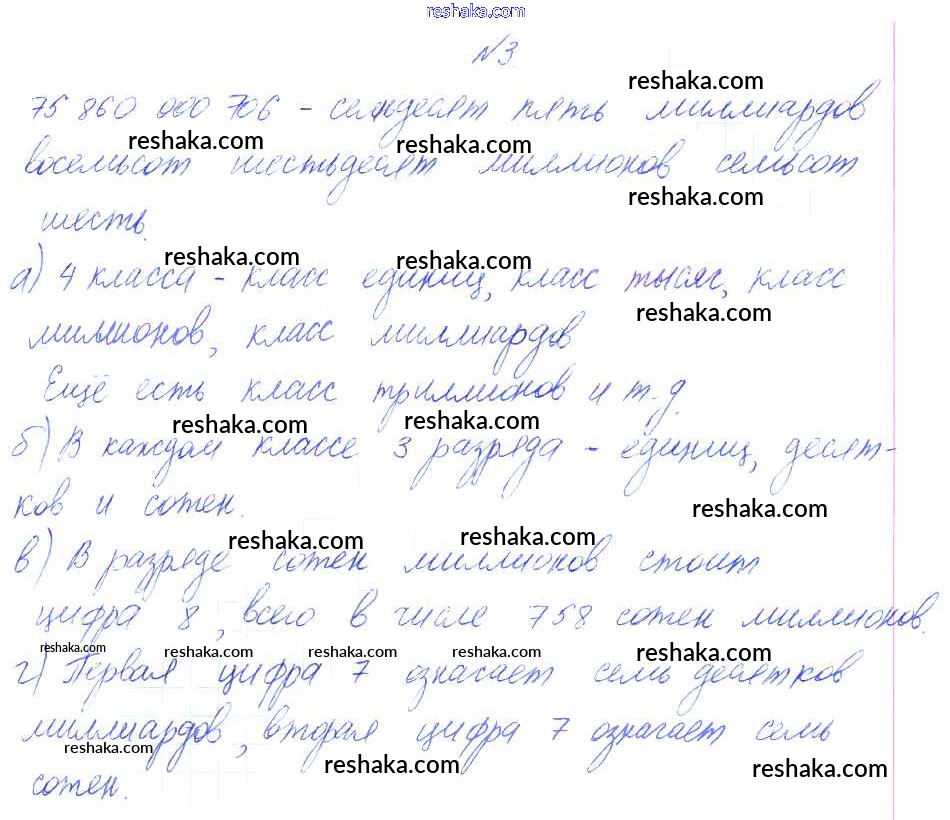 reshaka.com
№3.
reshaka.com
75 860 000 706 - семьдесят пять миллиардов
reshaka.com reshaka.com
восемьсот шестьдесят миллионов семьсот
reshaka.com
шесть.
reshaka.com reshaka.com
а) 4 класса - класс единиц, класс тысяч, класс
reshaka.com
миллионов, класс миллиардов
Ещё есть класс триллионов и т.д.
reshaka.com reshaka.com
б) В каждом классе 3 разряда - единиц, десят-
ков и сотен.
reshaka.com
reshaka.com reshaka.com
в) В разряде сотен миллионов стоит
цифра 8, всего в числе 758 сотен миллионов.
reshaka.com reshaka.com reshaka.com reshaka.com
г) Первая цифра 7 означает семь десятков
миллиардов, вторая цифра 7 означает семь
reshaka.com
reshaka.com reshaka.com
сотен.